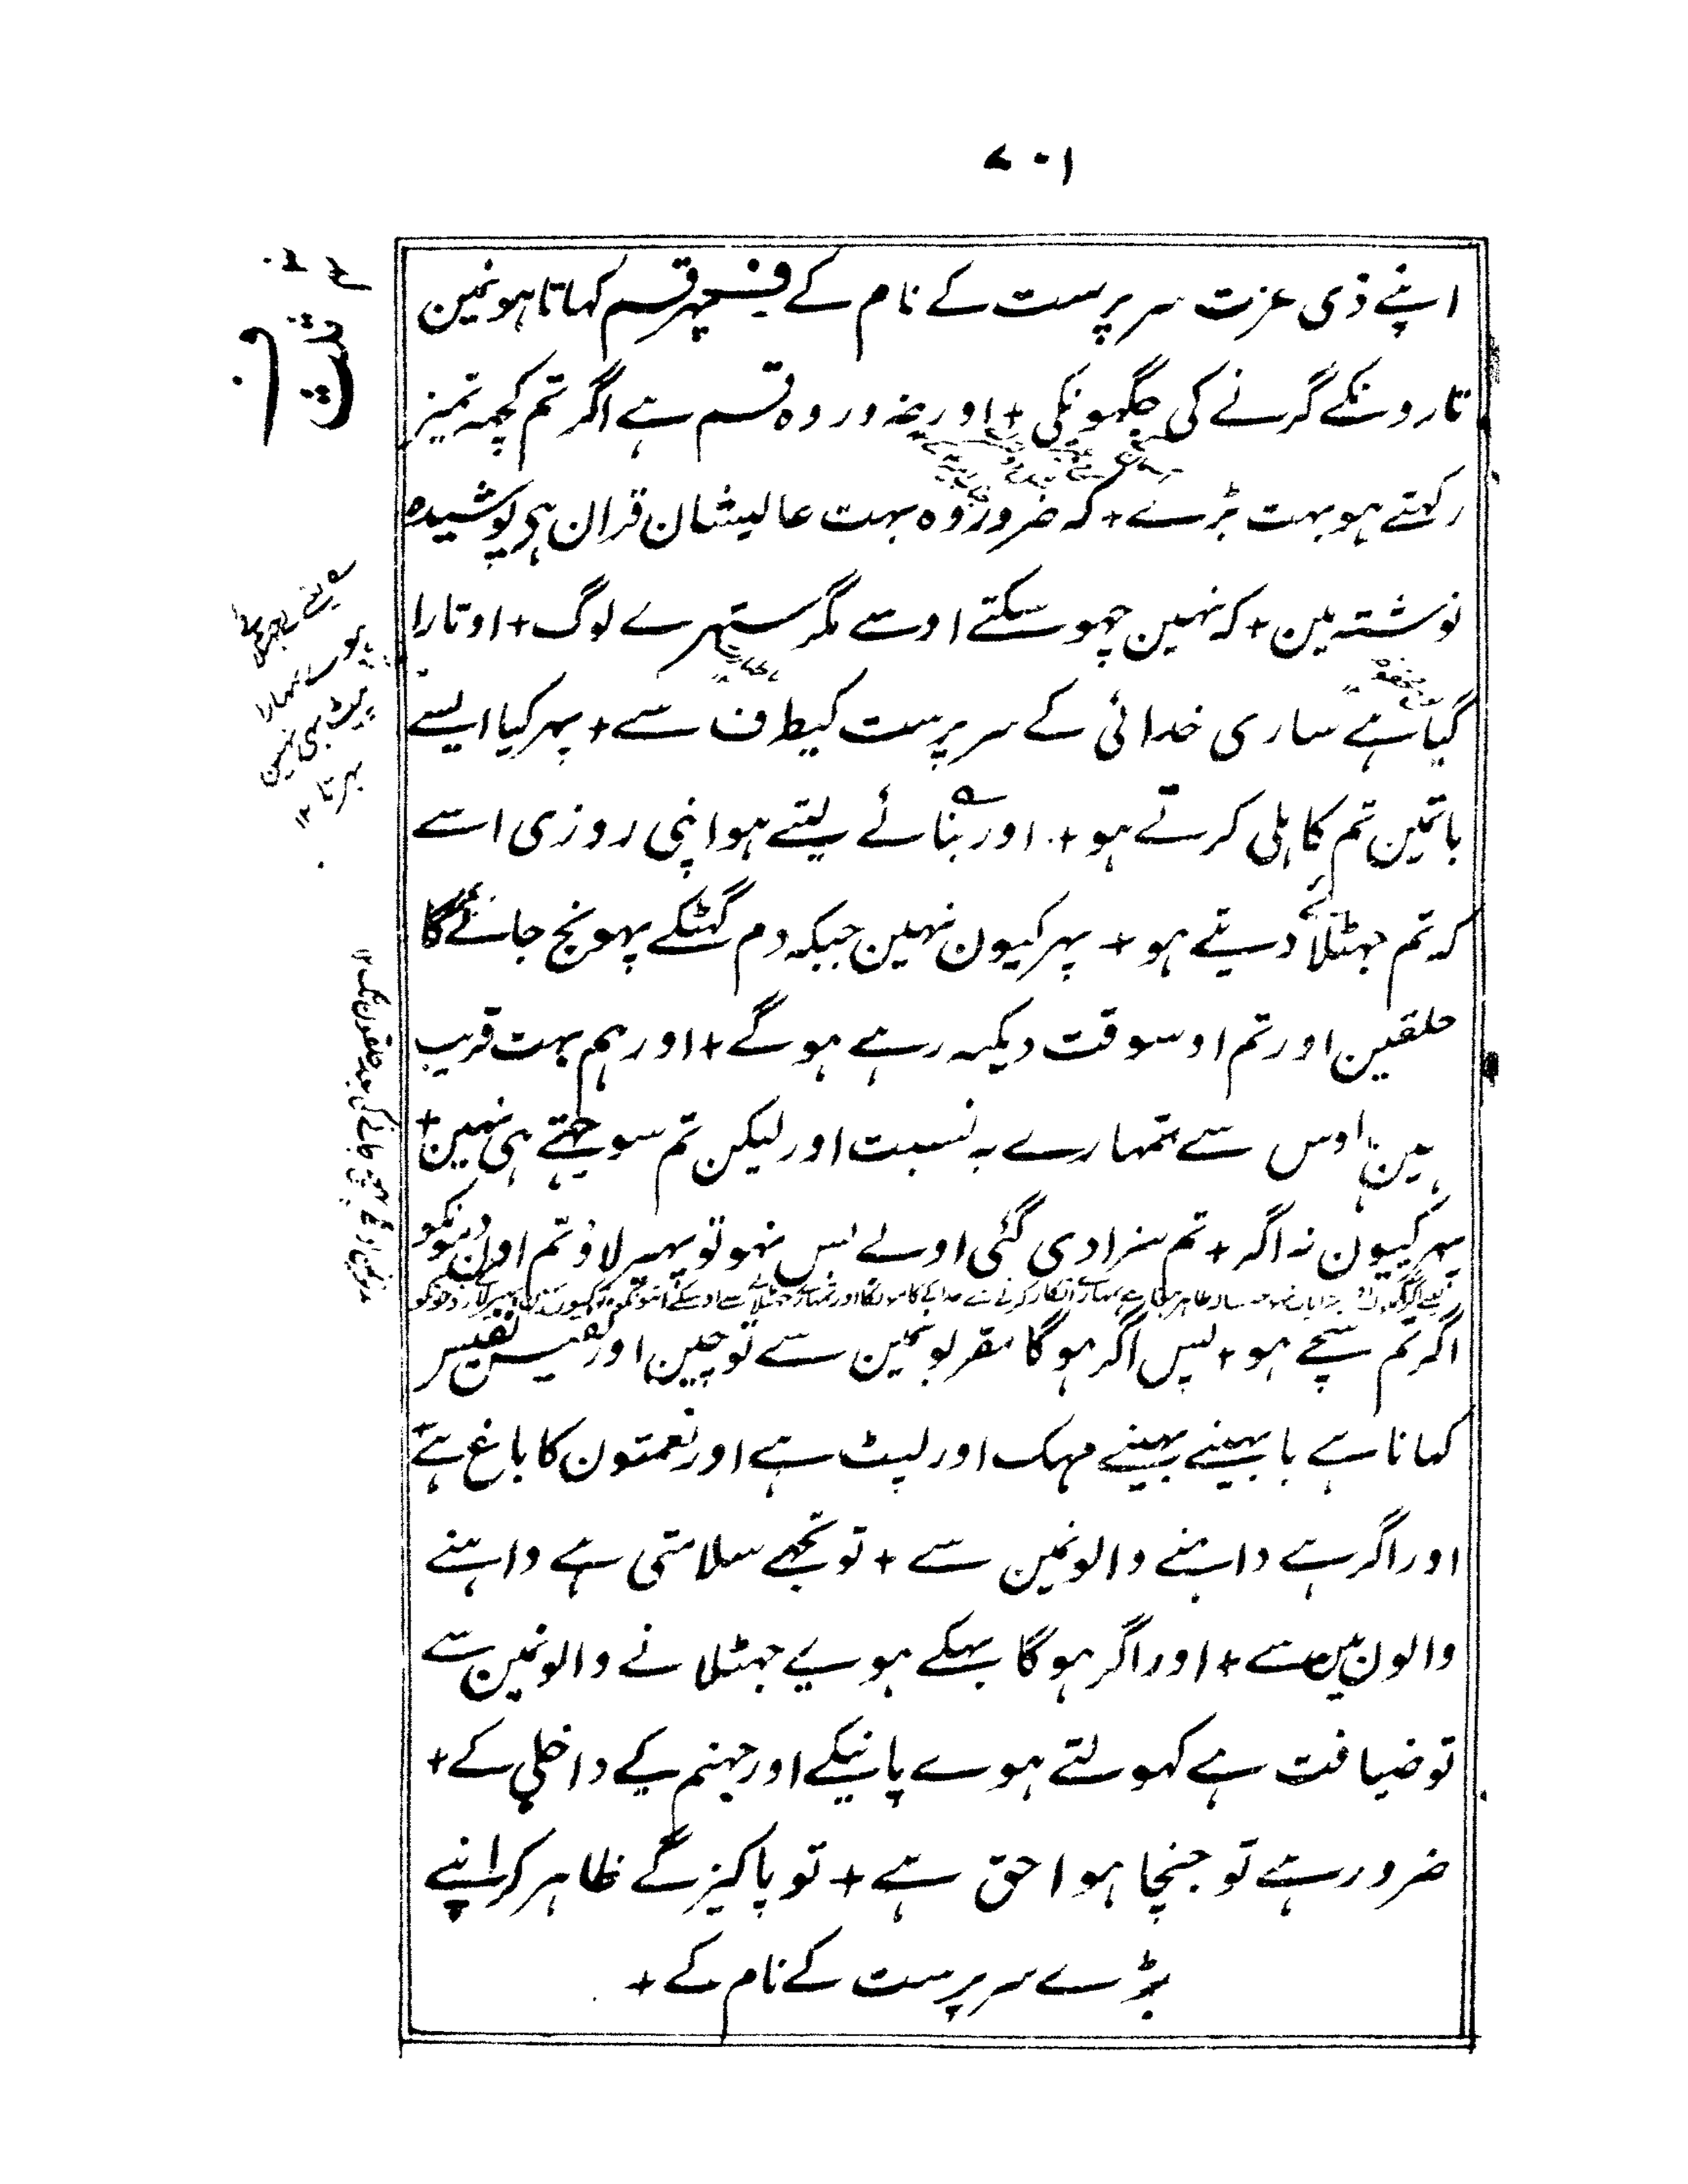 ۷۰۱
اپنے ذی عزت سرپرست کے نام کے ف پہر قسم کہاتا ہونمین
تارونکے گرنے کی جگہونکی + اور ضرور وہ قسم ہے اگر تم کچہہ تمیز
رکہتے ہو بہت بڑے + کہ ضرور وہ بہت عالیشان قران ہی پوشیدہ
نوشتہ مین + کہ نہین چہو سکتے اوسے مگر ستہرے لوگ + اوتارا
گیا ہے ساری خدائی کے سرپرست کیطرف سے + پہر کیا ایسے
باتمین تم کاہلی کرتے ہو + اور بنائے لیتے ہو اپنی روزی اسے
کہ تم جہٹلائے دیتے ہو + پہر کیون نہین جبکہ دم گہٹکے پہونچ جائے گا
حلقین اور تم اوسوقت دیکہہ رہے ہو گے + اور ہم بہت قریب
ہین اوس سے تمہارے بہ نسبت اور لیکن تم سوجہتے ہی نہین +
پہر کیون نہ اگر + تم سزا دی گئی اولے بس نہو تو پہیر لاؤ تم اون دمونکو
اگر تم سچے ہو + پس اگر ہو گا مقربونمین سے تو چین اور نفیس
کہانا ہے یا بہینے بہینے مہک اور لپٹ ہے اور نعمتون کا باغ ہے +
اور اگر ہے داہنے والونمین سے + تو تجہے سلامتی ہے داہنے
والون مین سے + اور اگر ہو گا بہکے ہویے جہٹلانے والونمین سے
تو ضیافت ہے کہولتے ہوے پانیکے اور جہنم کے داخلی کے +
ضرور ہے تو جنچا ہوا حق ہے + تو پاکیزگے ظاہر کر اپنے
بڑے سرپرست کے نام کے +
ثلث
یعنے بے جہٹلائے
ہوے تمہارا
پیٹ ہی نہین
بہرتا ۱۲